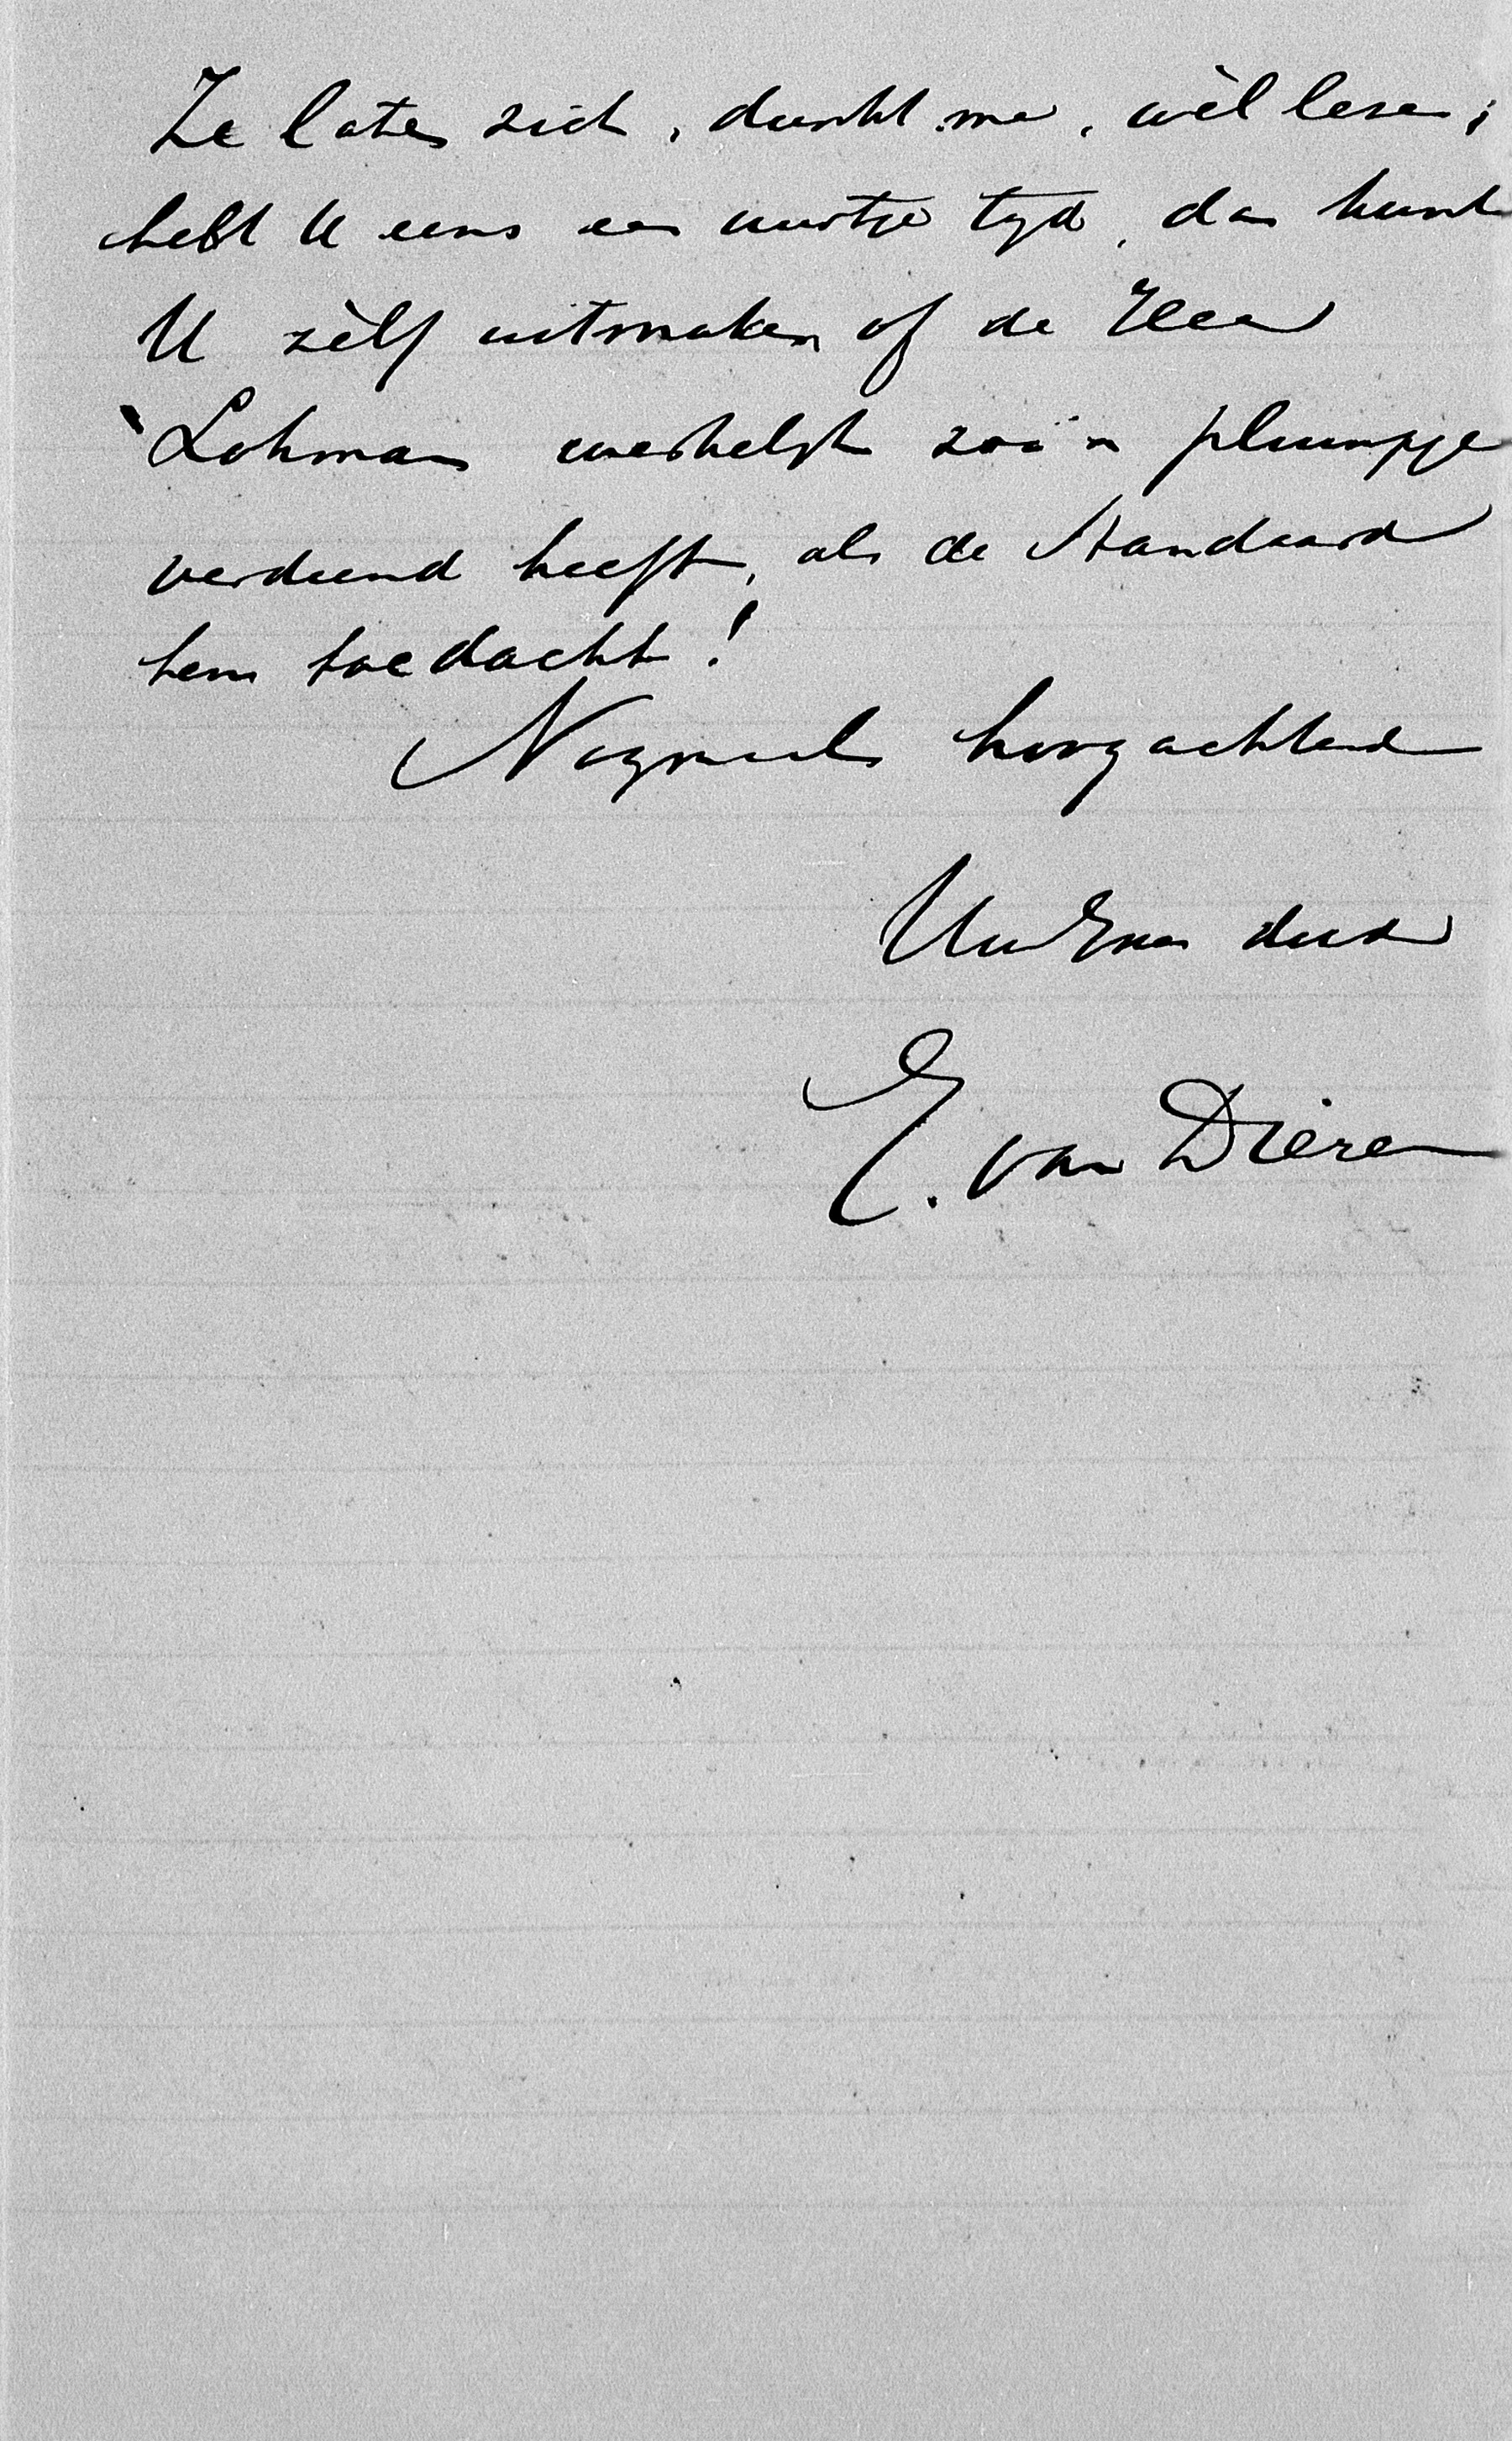 Ze laten zich, dunkt me, wèl lezen;
hebt U eens een uurtje tyd, dan kunt
U zèlf uitmaken of de Heer
Lohman werkelyk zoo'n plumpje
verdiend heeft, als de Standaard
hem toedacht!
Nogmaals hoogachtend
UwEdw dwd
E. van Dieren